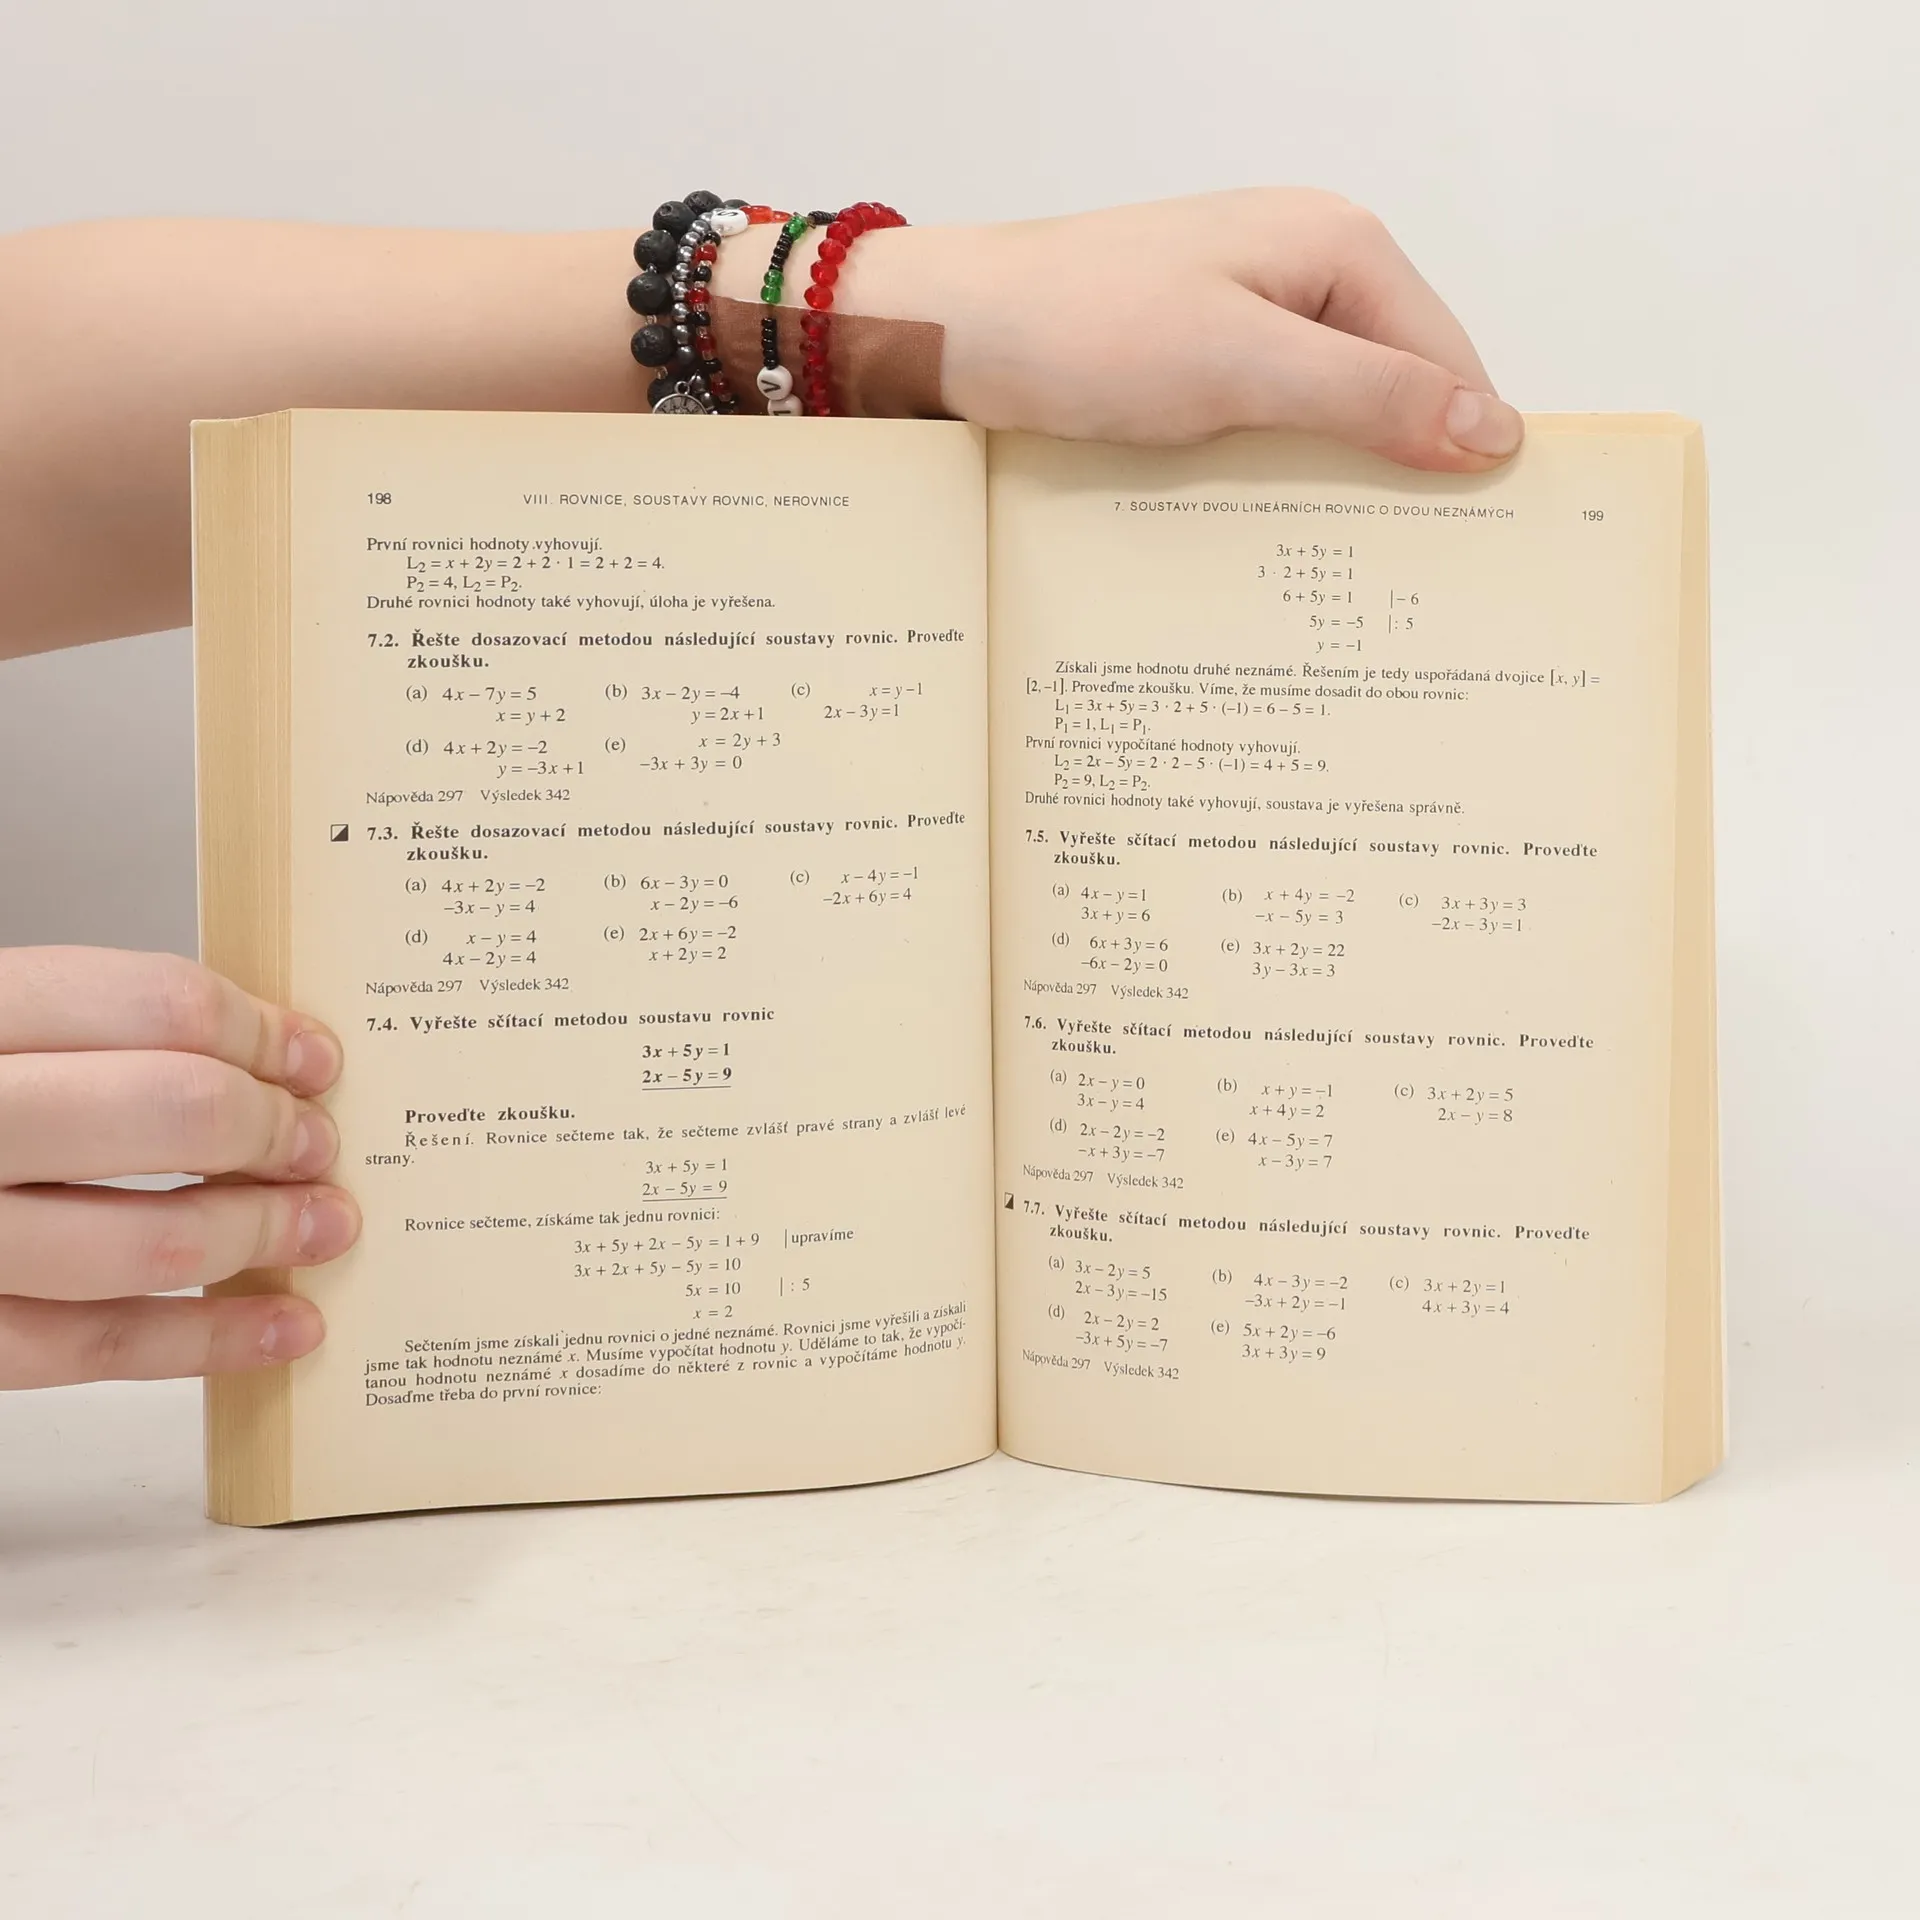 S
V
198
VIII. ROVNICE, SOUSTAVY ROVNIC, NEROVNICE
První rovnici hodnoty vyhovují.
L₂ = x + 2y = 2 + 2 · 1 = 2 + 2 = 4.
P₂ = 4, L₂ = P₂.
Druhé rovnici hodnoty také vyhovují, úloha je vyřešena.
7.2. Řešte dosazovací metodou následující soustavy rovnic. Proveďte
zkoušku.
(a) 4x – 7y = 5 (b) 3x – 2y = –4 (c) x = y – 1
x = y + 2 y = 2x + 1 2x – 3y = 1
(d) 4x + 2y = –2 (e) x = 2y + 3
y = –3x + 1 –3x + 3y = 0
Nápověda 297 Výsledek 342
7.3. Řešte dosazovací metodou následující soustavy rovnic. Proveďte
zkoušku.
(a) 4x + 2y = –2 (b) 6x – 3y = 0 (c) x – 4y = –1
–3x – y = 4 x – 2y = –6 –2x + 6y = 4
(d) x – y = 4 (e) 2x + 6y = –2
4x – 2y = 4 x + 2y = 2
Nápověda 297 Výsledek 342
7.4. Vyřešte sčítací metodou soustavu rovnic
3x + 5y = 1
2x – 5y = 9
Proveďte zkoušku.
Řešení. Rovnice sečteme tak, že sečteme zvlášť pravé strany a zvlášť levé
strany.
3x + 5y = 1
2x – 5y = 9
Rovnice sečteme, získáme tak jednu rovnici:
3x + 5y + 2x – 5y = 1 + 9 | upravíme
3x + 2x + 5y – 5y = 10
5x = 10 | : 5
x = 2
Sečtením jsme získali jednu rovnici o jedné neznámé. Rovnici jsme vyřešili a získali
jsme tak hodnotu neznámé x. Musíme vypočítat hodnotu y. Uděláme to tak, že vypočí-
tanou hodnotu neznámé x dosadíme do některé z rovnic a vypočítáme hodnotu y.
Dosaďme třeba do první rovnice:
7. SOUSTAVY DVOU LINEÁRNÍCH ROVNIC O DVOU NEZNÁMÝCH
199
3x + 5y = 1
3 · 2 + 5y = 1
6 + 5y = 1 | – 6
5y = –5 | : 5
y = –1
Získali jsme hodnotu druhé neznámé. Řešením je tedy uspořádaná dvojice [x, y] =
[2, –1]. Proveďme zkoušku. Víme, že musíme dosadit do obou rovnic:
L₁ = 3x + 5y = 3 · 2 + 5 · (–1) = 6 – 5 = 1.
P₁ = 1, L₁ = P₁.
První rovnici vypočítané hodnoty vyhovují.
L₂ = 2x – 5y = 2 · 2 – 5 · (–1) = 4 + 5 = 9.
P₂ = 9, L₂ = P₂.
Druhé rovnici hodnoty také vyhovují, soustava je vyřešena správně.
7.5. Vyřešte sčítací metodou následující soustavy rovnic. Proveďte
zkoušku.
(a) 4x – y = 1 (b) x + 4y = –2 (c) 3x + 3y = 3
3x + y = 6 –x – 5y = 3 –2x – 3y = 1
(d) 6x + 3y = 6 (e) 3x + 2y = 22
–6x – 2y = 0 3y – 3x = 3
Nápověda 297 Výsledek 342
7.6. Vyřešte sčítací metodou následující soustavy rovnic. Proveďte
zkoušku.
(a) 2x – y = 0 (b) x + y = –1 (c) 3x + 2y = 5
3x – y = 4 x + 4y = 2 2x – y = 8
(d) 2x – 2y = –2 (e) 4x – 5y = 7
–x + 3y = –7 x – 3y = 7
Nápověda 297 Výsledek 342
7.7. Vyřešte sčítací metodou následující soustavy rovnic. Proveďte
zkoušku.
(a) 3x – 2y = 5 (b) 4x – 3y = –2 (c) 3x + 2y = 1
2x – 3y = –15 –3x + 2y = –1 4x + 3y = 4
(d) 2x – 2y = 2 (e) 5x + 2y = –6
–3x + 5y = –7 3x + 3y = 9
Nápověda 297 Výsledek 342